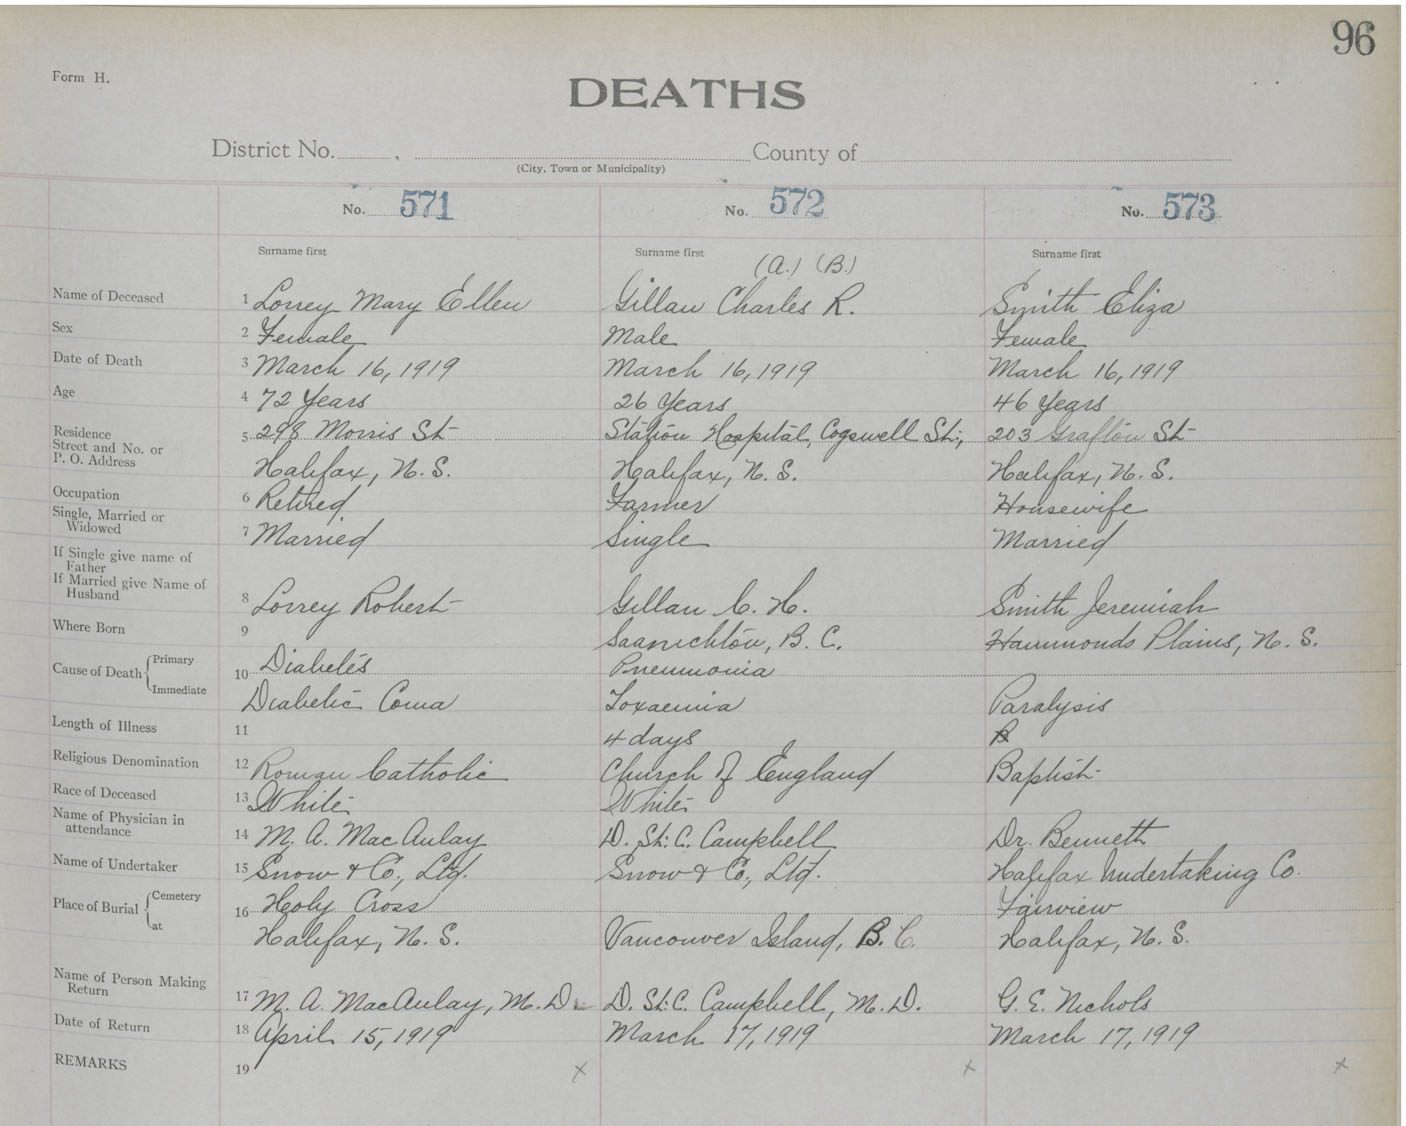 96
Form H.
DEATHS
District No. County of
(City, Town or Municipality)
No. 571 No. 572 No. 573
Surname first Surname first Surname first
(A.) (B.)
Name of Deceased 1 Lorrey Mary Ellen Gillan Charles R. Smith Eliza
Sex 2 Female Male Female
Date of Death 3 March 16, 1919 March 16, 1919 March 16, 1919
Age 4 72 Years 26 Years 46 Years
Residence
Street and No. or 5 298 Morris St Station Hospital, Cogswell St., 203 Grafton St
P. O. Address Halifax, N. S. Halifax, N. S. Halifax, N. S.
Occupation 6 Retired Farmer Housewife
Single, Married or
Widowed 7 Married Single Married
If Single give name of
Father
If Married give Name of
Husband 8 Lorrey Robert Gillan C. H. Smith Jeremiah
Where Born 9 Saanichton, B. C. Hammonds Plains, N. S.
Cause of Death Primary 10 Diabetes Pneumonia
Immediate Diabetic Coma Toxaemia Paralysis
Length of Illness 11 4 days
Religious Denomination 12 Roman Catholic Church of England Baptist
Race of Deceased 13 White White
Name of Physician in
attendance 14 M. A. MacAulay D. St. C. Campbell Dr. Bennett
Name of Undertaker 15 Snow & Co., Ltd. Snow & Co., Ltd. Halifax Undertaking Co.
Place of Burial Cemetery 16 Holy Cross Fairview
at Halifax, N. S. Vancouver Island, B. C. Halifax, N. S.
Name of Person Making
Return 17 M. A. MacAulay, M. D. D. St. C. Campbell, M. D. G. E. Nichols
Date of Return 18 April 15, 1919 March 17, 1919 March 17, 1919
REMARKS 19 x x x